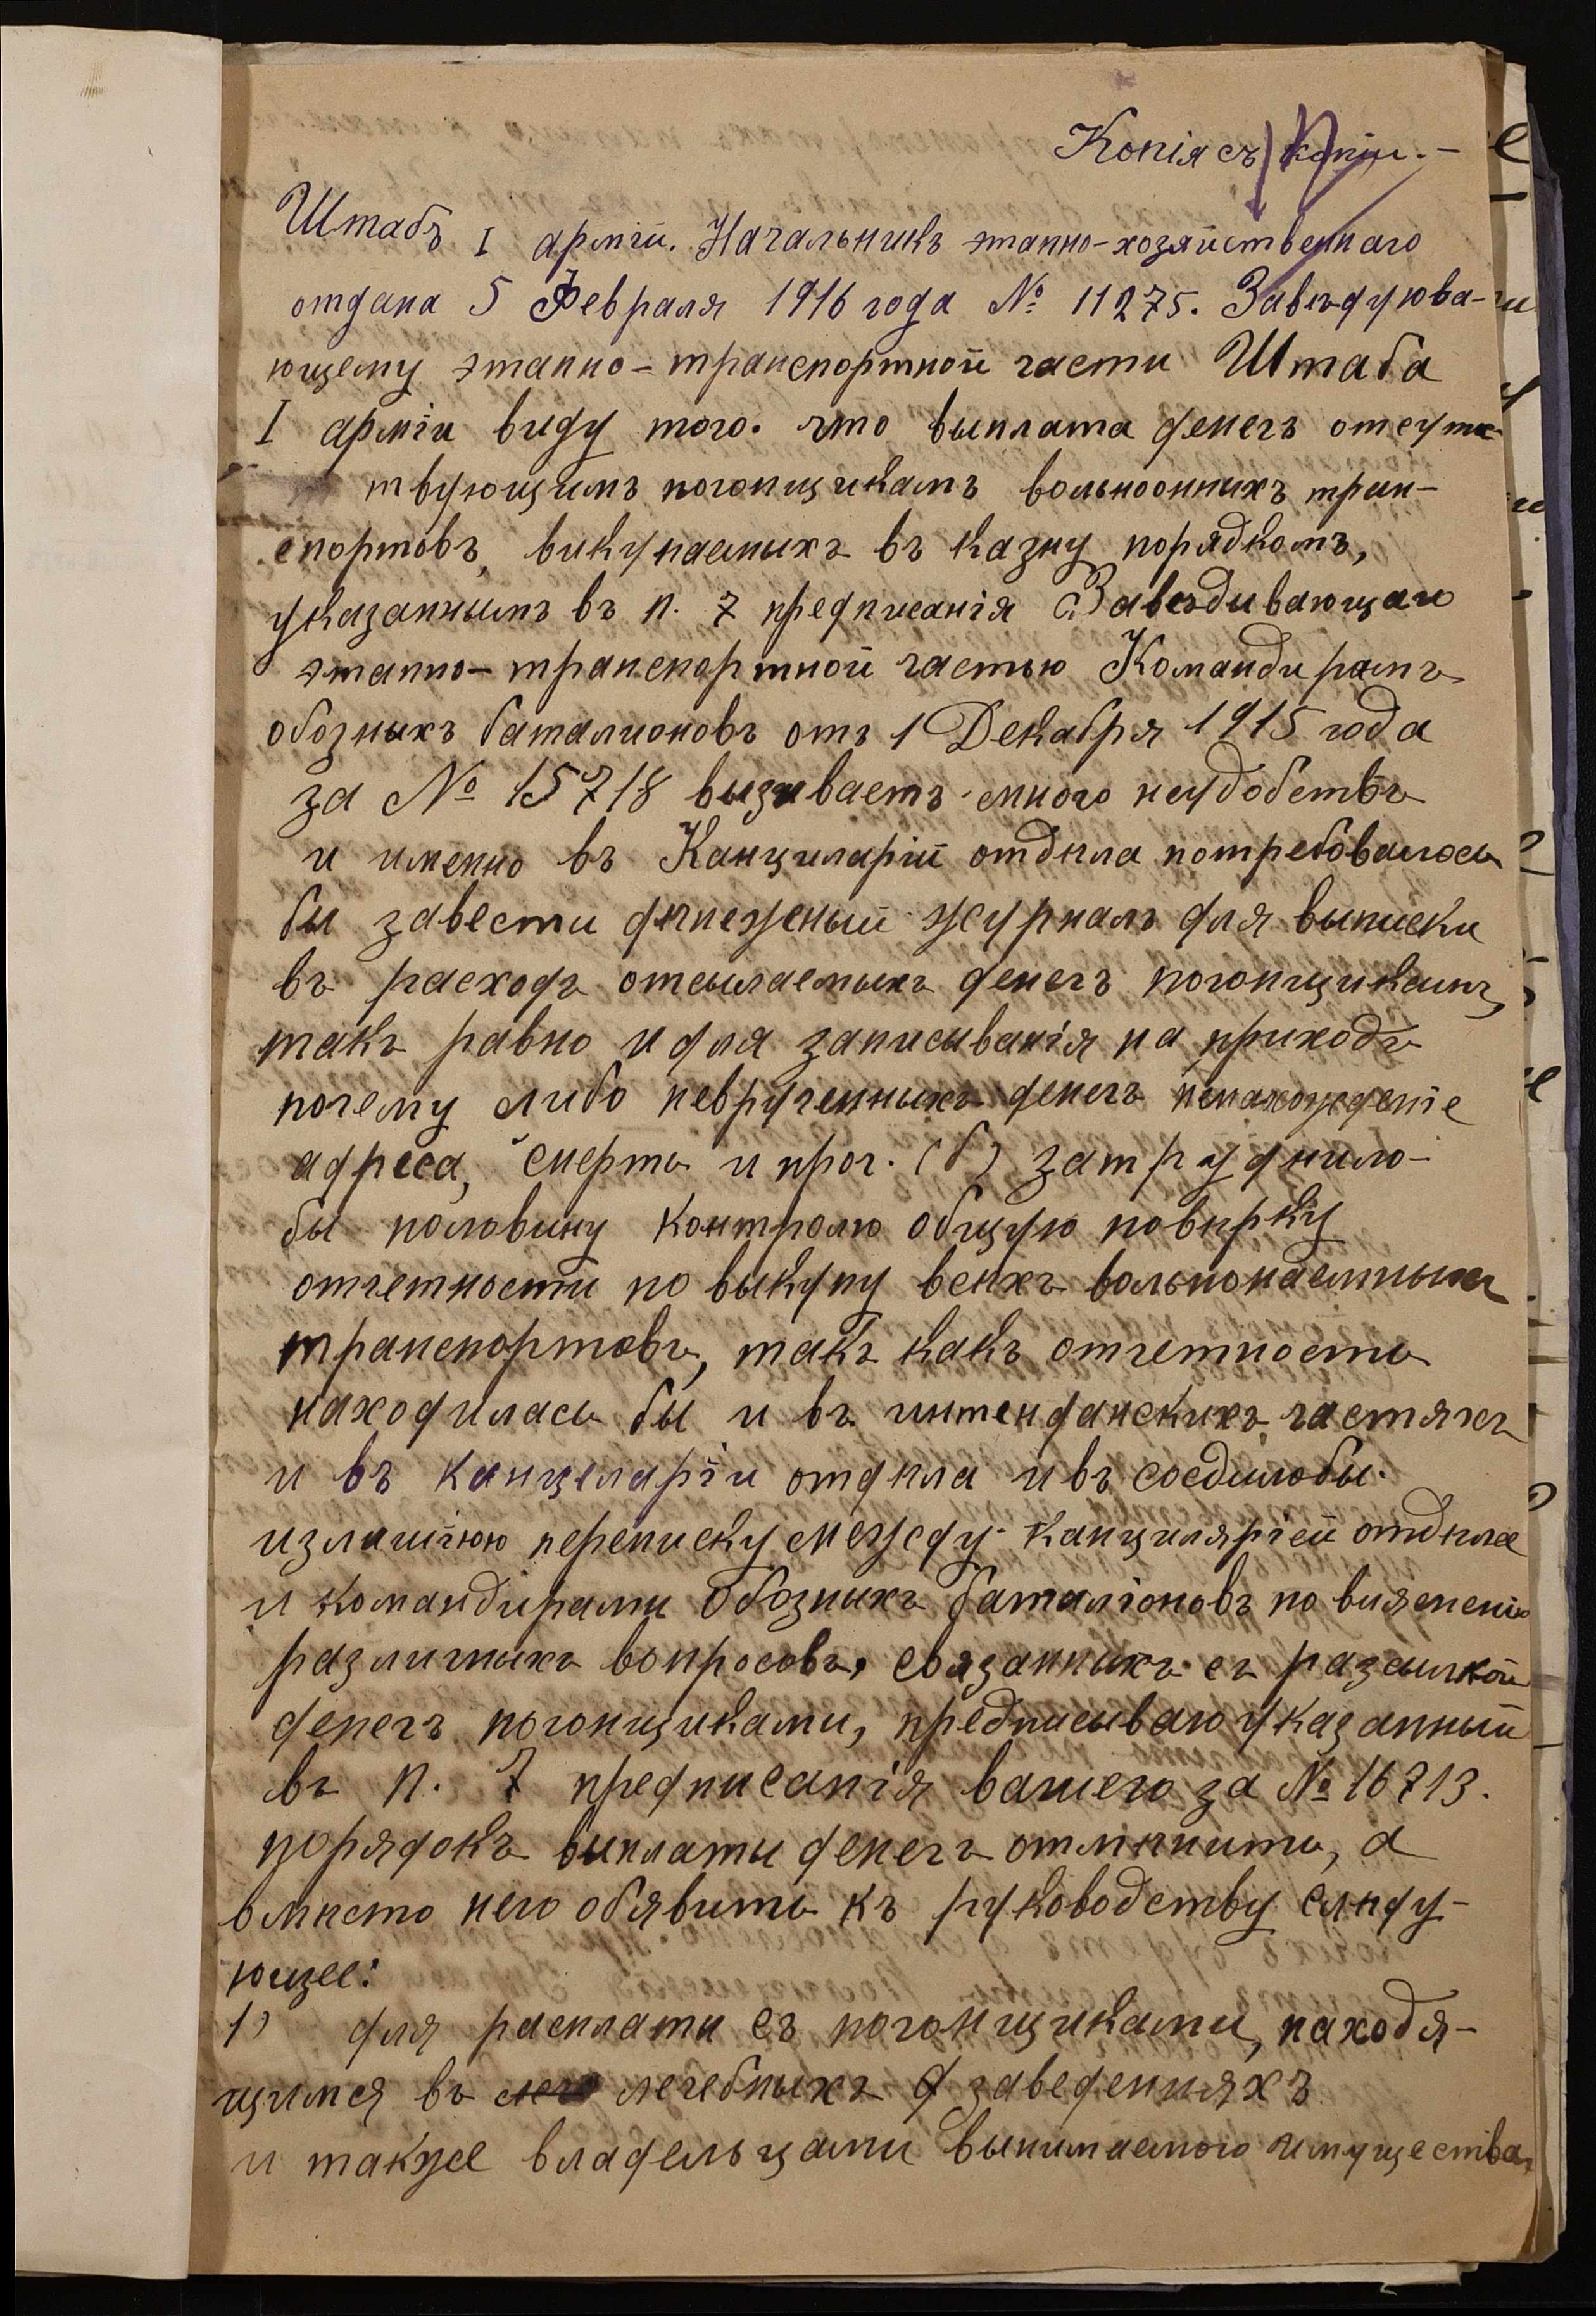 Копія съ копіи.-
Штабъ I арміи. Начальникъ этапно-хозяйственнаго
отдѣла 5 Февраля 1916 года № 11275. Завѣдуюва-
ющему этапно-транспортной части Штаба
I арміи виду того. что выплата денегъ отсутс-
твующимъ погонщикамъ вольноонныхъ тран-
спортовъ, викупаемыхъ въ казну порядкомъ,
указаннымъ въ п. 7 предписанія Завѣдивающаго
этапно-транспортной частью Командирамъ
обозныхъ баталионовъ отъ 1 Декабря 1915 года
за № 15718 вызиваетъ много неудобствъ
и именно въ Канциларіи отдѣла потребовалось
бы завести денежный журналъ для выписки
въ расходъ отсылаемыхъ денегъ погонщикамъ,
такъ равно и для записыванія на приходъ
почему либо неврученныхъ денегъ ненахожденіе
адреса, смерть и проч. (б) затруднило-
бы половину контролю общую повѣрку
отчетности по выкупу всѣхъ вольнонаемныхъ
транспортовъ, такъ какъ отчетность
находилась бы и въ интенданскихъ частяхъ
и въ канцеларіи отдѣла и въ соедилобы.
излишнюю переписку между канциляріей отдѣла
и командирами Обозныхъ баталіоновъ по вияснению
различныхъ вопросовъ, связанныхъ съ разсылкой
денегъ погонщиками, предписываю указанный
въ п. 7 предписанія вашего за № 16713.
порядокъ выплаты денегъ отмѣнить, а
вмѣсто него обявить къ руководству слѣду-
ющее:
1) для расплаты съ погонщиками, находя-
щимся въ лечебныхъ заведенияхъ
и также владельцами вынимаемого имущества,